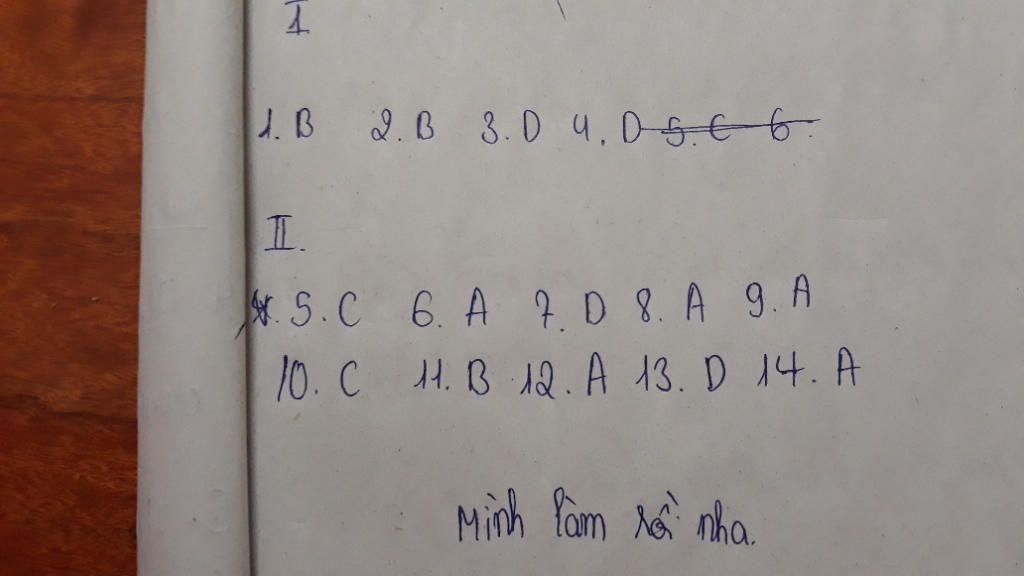 I
1. B 2. B 3. D 4. D 5. C 6.
II.
5. C 6. A 7. D 8. A 9. A
10. C 11. B 12. A 13. D 14. A
Mình làm rồi nha.